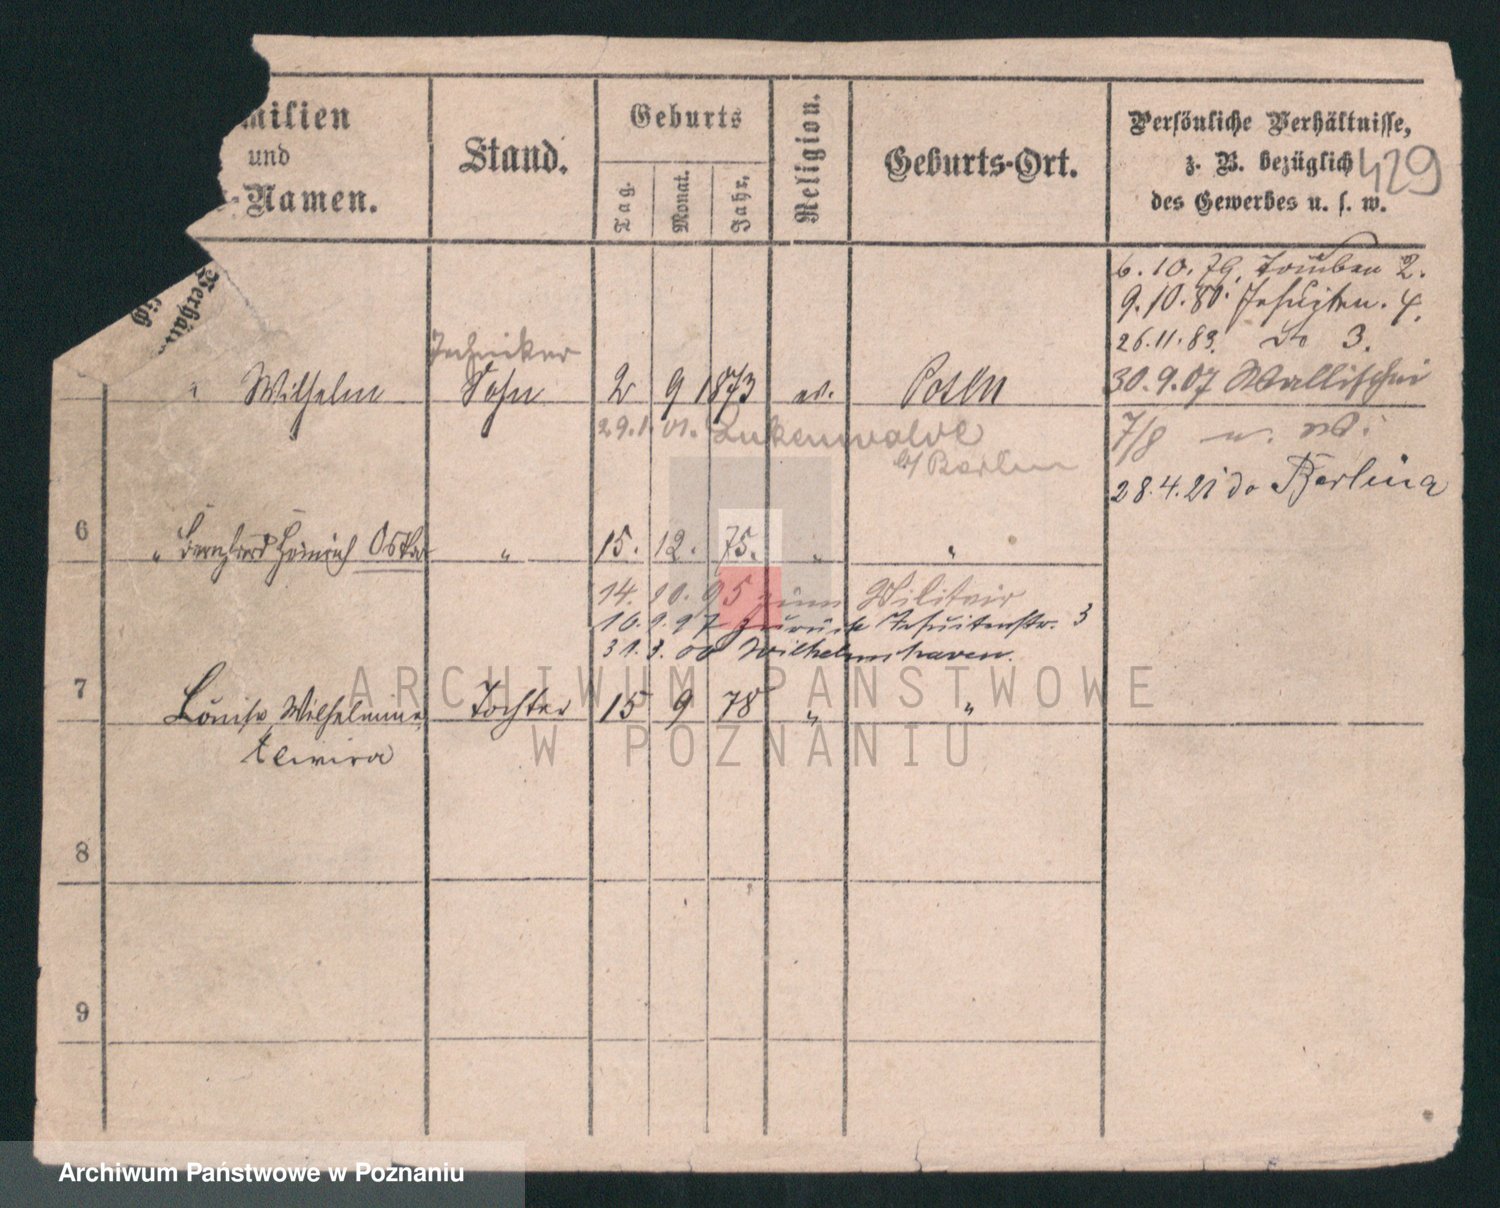 milien
und
-Namen.
Stand.
Geburts
Tag.
Monat.
Jahr.
Religion.
Geburts-Ort.
Persönliche Verhältnisse,
z. B. bezüglich
des Gewerbes u. s. w.
429
6. 10. 79. Tauben 2.
9. 10. 80. Jesuiten. 4.
26. 11. 83. do 3.
30. 9. 07 Wallischei
7/8
28. 4. 21 do Berlina
Techniker
Wilhelm Sohn 2 9 1873 ev. Posen
29. 1. 01. Lukenwalde
b/ Berlin
6
" Bernhard Heinrich Oskar " 15. 12. 75. " "
14. 10. 95 zum Militair
10. 9. 97 zurück Jesuitenstr. 3
31. 3. 00 Wilhelmshaven.
7
Louise Wilhelmine Tochter 15 9 78 " "
Elwira
8
9
ARCHIWUM PAŃSTWOWE
W POZNANIU
Archiwum Państwowe w Poznaniu